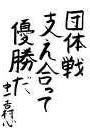 団体戦
支え合って
優勝だ